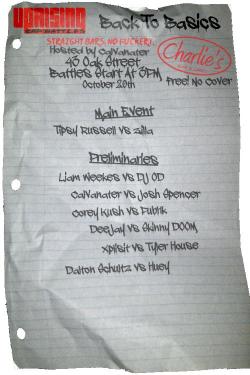 UPRISING Back To Basics
RAP BATTLES
STRAIGHT BARS, NO FUCKERY!
Hosted by Calvanater
Charlie's
43 Oak Street
Battles Start At 3PM
Free! No Cover
October 20th
Main Event
Tipsy Russell vs Zilla
Preliminaries
Liam Weekes vs DJ OD
Calvanater vs Josh Spencer
Corey Kush vs Fubrik
Deejay vs Skinny DOOM
Xplisit vs Tyler House
Dalton Schultz vs Huey